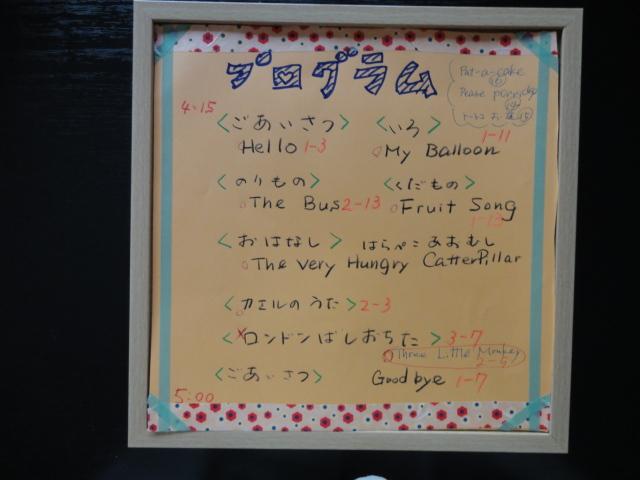 プログラム
Pat-a-cake
Pease porridge
4:15
<ごあいさつ> <いろ>
Hello 1-3 My Balloon 1-11
<のりもの> <くだもの>
The Bus 2-13 Fruit Song 1-13
<おはなし> はらぺこあおむし
The Very Hungry CatterPillar
<カエルのうた> 2-3
<ロンドンばしおちた> 3-7
Three Little Monkey
2-5
<ごあいさつ> Goodbye 1-7
5:00